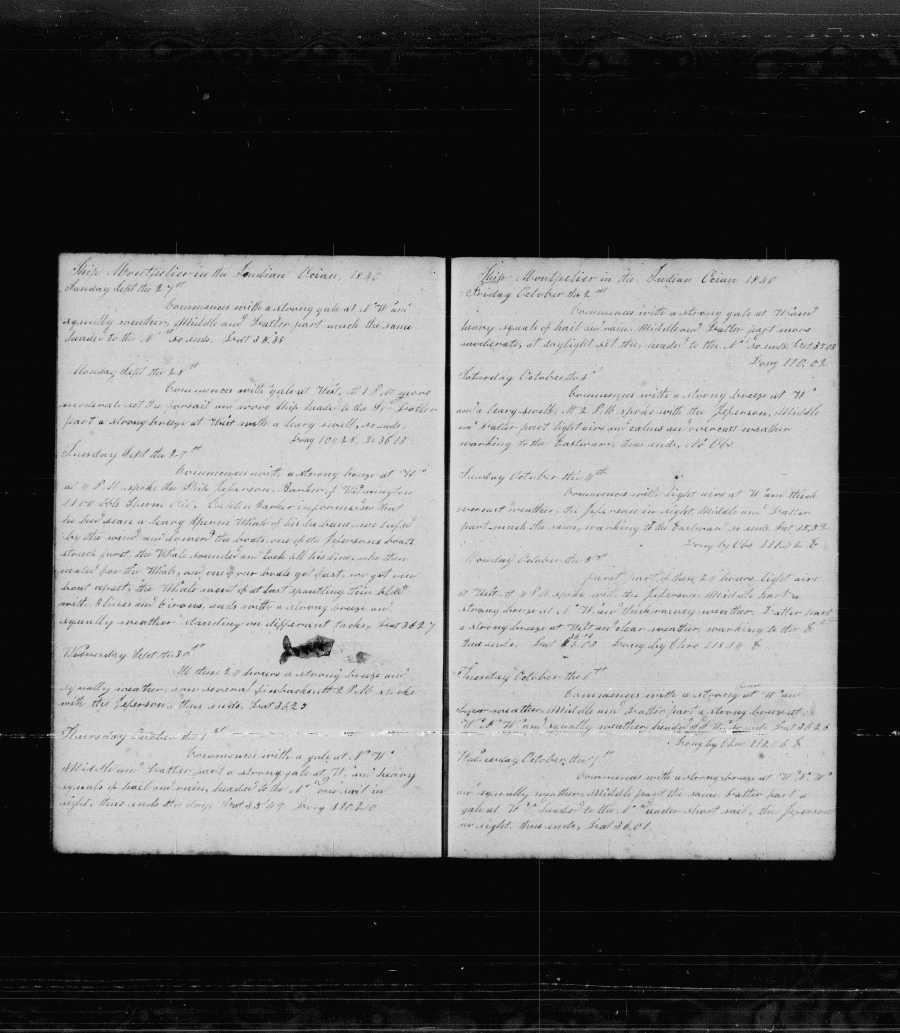 Ship Montpelier in the Indian Ocian, 1840
Sunday Sept the 27th
Commences with a strong gale at N W and
squally weather, Middle and Latter part much the same
headed to the N so ends Lat 38,38
Monday Sept the 28th
Commences with gale at West, At 2 P.M. more
moderate set the and wore Ship headed to the Latter
part a strong breeze at West with a heavy swell, so ends,
Long 109,28, 36 18
Tuesday Sept the 29th
Commences with a strong breeze at W
at 4 P.M. spoke the Ship Jeferson, Barker of Wilmington
1100 bbls Sperm Oil, Captin Barker informes us that
he had sean a large Sperm Whale of his lee beam, we
by the wind and lowerd the boats, one of the Jefersons boats
struck furst, the Whale sounded and took all his line, who then
waited for the Whale, and one of our boats got fast, we got one
boat upset, the Whale at last spouting thin blood
with 3 lines and 6 irons, ends with a strong breeze and
squally weather standing on differant tacks, Lat 36 27
Wednesday Sept the 30th
All these 24 hours a strong breeze and
squally weather, saw several finbacks At 2 P.M. spoke
with the Jeferson, thus ends, Lat 36,23
Thursday October the 1st
Commences with a gale at N W
Middle and Latter part a strong gale at W and heavy
squals of hail and rain, headed to the N one sail in
sight, thus ends the day, Lat 35 49 Long 110 20
Ship Montpelier in the Indian Ocian 1840
Friday October the 2nd
Commences with a strong gale at W and
heavy squals of hail and rain, Middle and Latter part more
moderate, at daylight set the headed to the N so ends Lat 35 08
Long 110,02
Saturday October the 3d
Commences with a strong breeze at W
and a heavy swell. At 2 P.M. spoke with the Jeferson, Middle
and Latter part light airs and calms and overcast weather
working to the Eastward, thus ends, No Obs
Sunday October the 4th
Commences with light airs at W and thick
overcast weather, the Jeferson in sight, Middle and Latter
part much the same, working to the Eastward so ends Lat 35,32
Long by Obs 111.42 E
Monday October the 5d
Furst part of these 24 hours light airs
at West At 4 P.M. spoke with the Jeferson. Middle part a
strong breeze at N W and thick rainey weather, Latter part
a strong breeze at West and clear weather, working to the E
thus ends. Lat 36.05 Long by Chro 113.14 E
Tuesday October the 6th
Commences with a strong breeze at W and
weather, Middle and Latter part a strong breeze at
W N W and squally weather headed at so ends Lat 36 26
Long by Chro 112 06 E
Wednesday October, the 7th
Commences with a strong breeze at W N W
and squally weather, Middle part the same, Latter part a
gale at W headed to the N under short sail, the Jeferson
in sight, thus ends, Lat 36,01